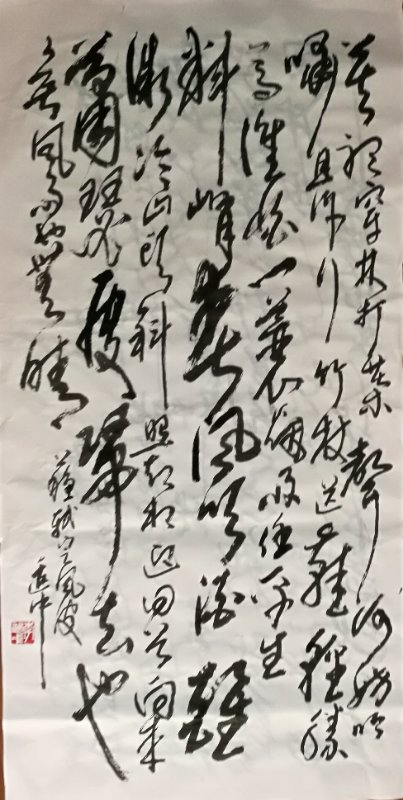 莫聽穿林打葉聲何妨吟
嘯且徐行竹杖芒鞋輕勝
馬誰怕一蓑烟雨任平生
料峭春風吹酒醒
微冷山頭斜照却相迎回首向来
蕭瑟處歸去也
無風雨也無晴
蘇軾定風波